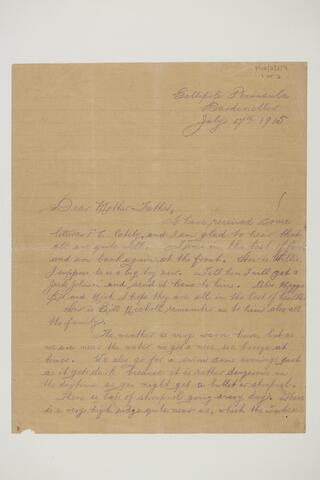 1 of 2
Gallipoli Peninsula
Dardenelles
July 17th 1915
Dear Mother & Father,
I have received some
letters lately, and I am glad to hear that
all are quite well. I am in the best
and am back again at the front. How is Willie,
I suppose he is a big boy now. Tell him I will get a
and send it home to him. Also Maggie
and Nick I hope they are all in the best of health
How is Bill Nicholl remember me to him also all
the family.
The weather is very warm here, but as
we are near the water we get a nice sea breeze at
times. We also go for a swim some evenings just
as it gets dark because it is rather dangerous in
the daytime as you might get a bullet or shrapnel.
There is lots of shrapnel going every day. There
is a very high ridge quite near us, which the Turks